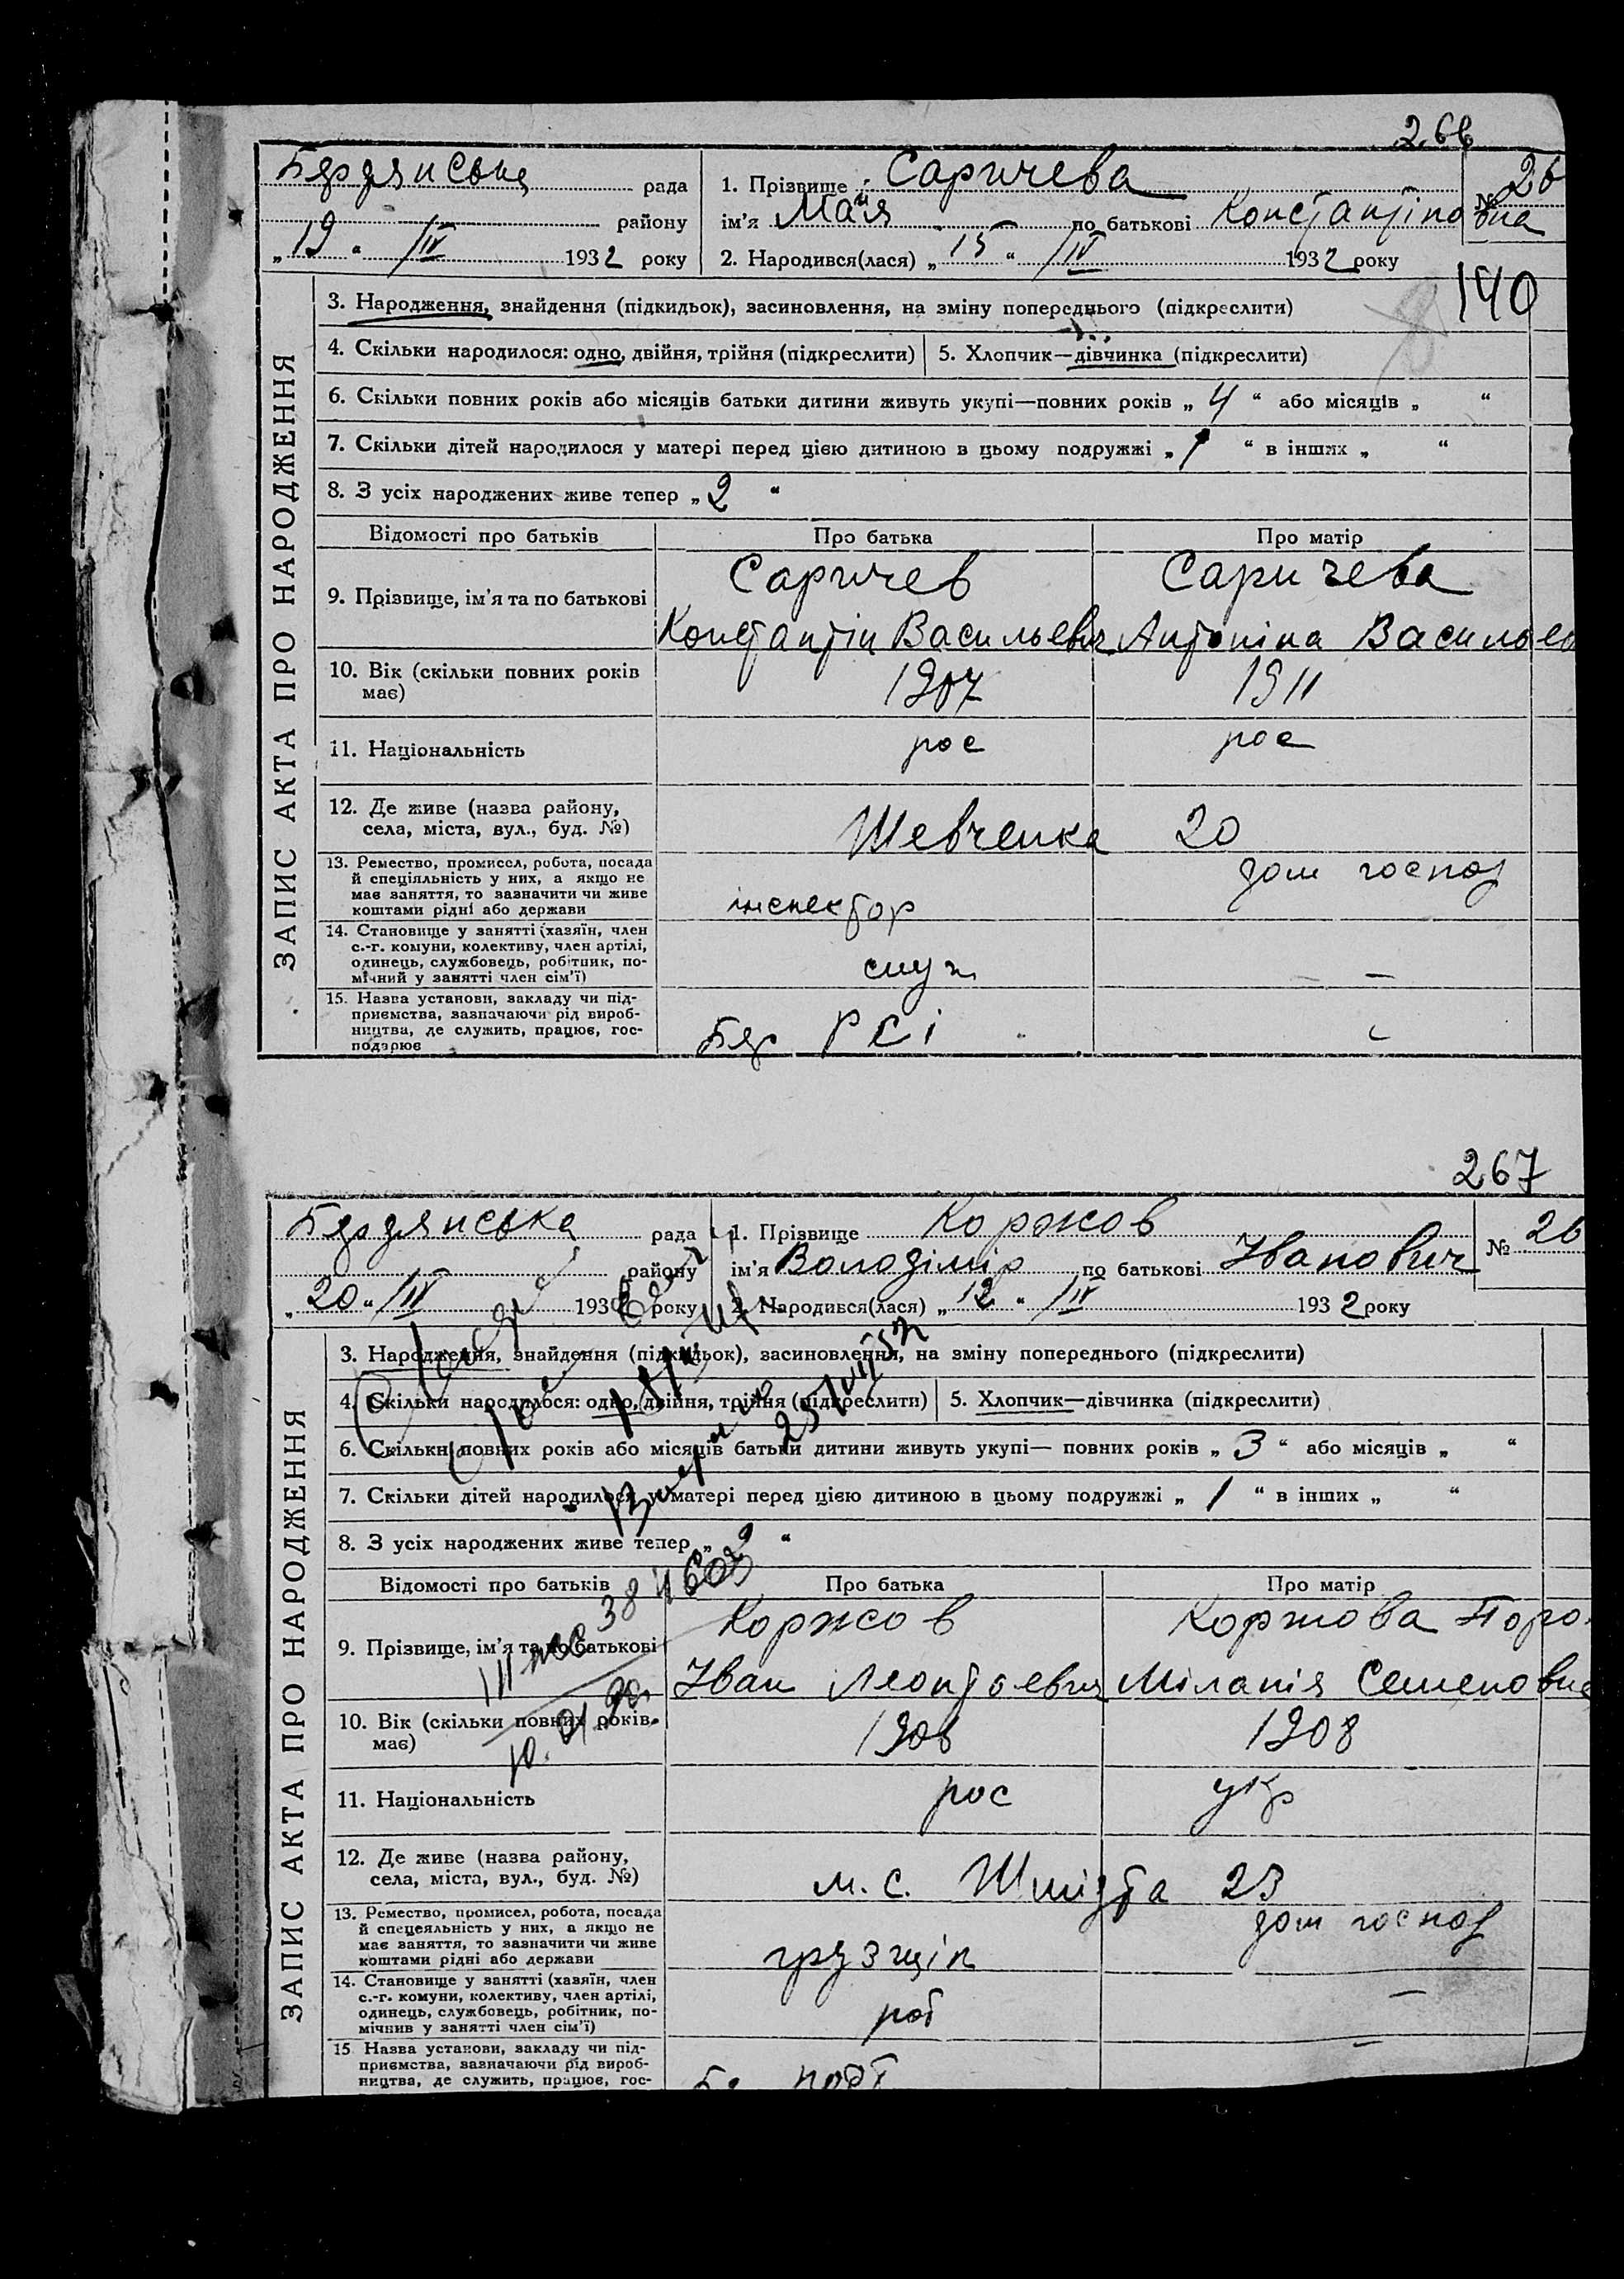 266
Бердянська рада
району
„19“ IV 1932 року
1. Прізвище Саричева
№ 26
ім'я Майя по батькові Константіновна
2. Народився(лася) „15“ IV 1932 року
140
ЗАПИС АКТА ПРО НАРОДЖЕННЯ
3. Народження, знайдення (підкидьок), засиновлення, на зміну попереднього (підкреслити)
4. Скільки народилося: одно, двійня, трійня (підкреслити)
5. Хлопчик—дівчинка (підкреслити)
6. Скільки повних років або місяців батьки дитини живуть укупі—повних років „4“ або місяців „ “
7. Скільки дітей народилося у матері перед цією дитиною в цьому подружжі „1“ в інших „ “
8. З усіх народжених живе тепер „2“
Відомості про батьків Про батька Про матір
9. Прізвище, ім'я та по батькові
Саричев
Константін Васильевич
Саричева
Антоніна Василье
10. Вік (скільки повних років
має)
1907 1911
11. Національність рос рос
12. Де живе (назва району,
села, міста, вул., буд. №)
Шевченка 20
13. Ремество, промисел, робота, посада
й спеціяльність у них, а якщо не
має заняття, то зазначити чи живе
коштами рідні або держави
інспектор
дом господ
14. Становище у занятті (хазяїн, член
с.-г. комуни, колективу, член артілі,
одинець, службовець, робітник, по-
мічний у занятті член сім'ї)
служ —
15. Назва установи, закладу чи під-
приємства, зазначаючи рід вироб-
ництва, де служить, працює, гос-
подарює
Бер РСІ
267
Бердянська рада
району
„20“ IV 1932 року
1. Прізвище Коржов
№ 26
ім'я Володімір по батькові Іванович
2. Народився(лася) „12“ IV 1932 року
ЗАПИС АКТА ПРО НАРОДЖЕННЯ
3. Народження, знайдення (підкидьок), засиновлення, на зміну попереднього (підкреслити)
4. Скільки народилося: одно, двійня, трійня (підкреслити)
5. Хлопчик—дівчинка (підкреслити)
6. Скільки повних років або місяців батьки дитини живуть укупі— повних років „3“ або місяців „ “
7. Скільки дітей народилося у матері перед цією дитиною в цьому подружжі „1“ в інших „ “
8. З усіх народжених живе тепер „ “
Відомості про батьків Про батька Про матір
9. Прізвище, ім'я та по батькові
Коржов
Іван Леонтьевич
Коржова
Міланія Семеновна
10. Вік (скільки повних років
має)
1906 1908
11. Національність рос укр
12. Де живе (назва району,
села, міста, вул., буд. №)
м. с. Шмідта 23
13. Ремество, промисел, робота, посада
й спецеяльність у них, а якщо не
має заняття, то зазначити чи живе
коштами рідні або держави
грузчік
дом господ
14. Становище у занятті (хазяїн, член
с.-г. комуни, колективу, член артілі,
одинець, службовець, робітник, по-
мічнив у занятті член сім'ї)
роб —
15 Назва установи, закладу чи під-
приємства, зазначаючи рід вироб-
ництва, де служить, працює, гос-
порт —